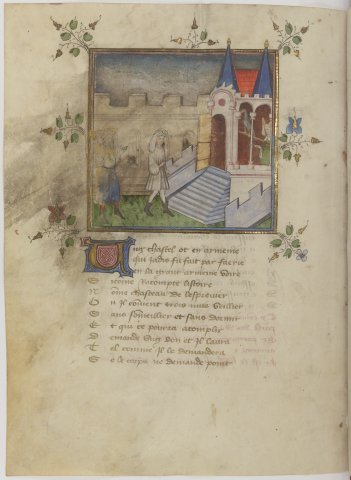 Ung chastel ot en armenie
qui jadis fu fait par faerie
en la grant armenie voire
Sicome racompte listoire
Nome chasteau de lesprevier
Ou il convient trois nuis veillier
Sans someillier et sans dormir
Et qui ce pourra acomplir
Demande ung don et il laura
Tel comme il le demandera
Se le corps ne demande point